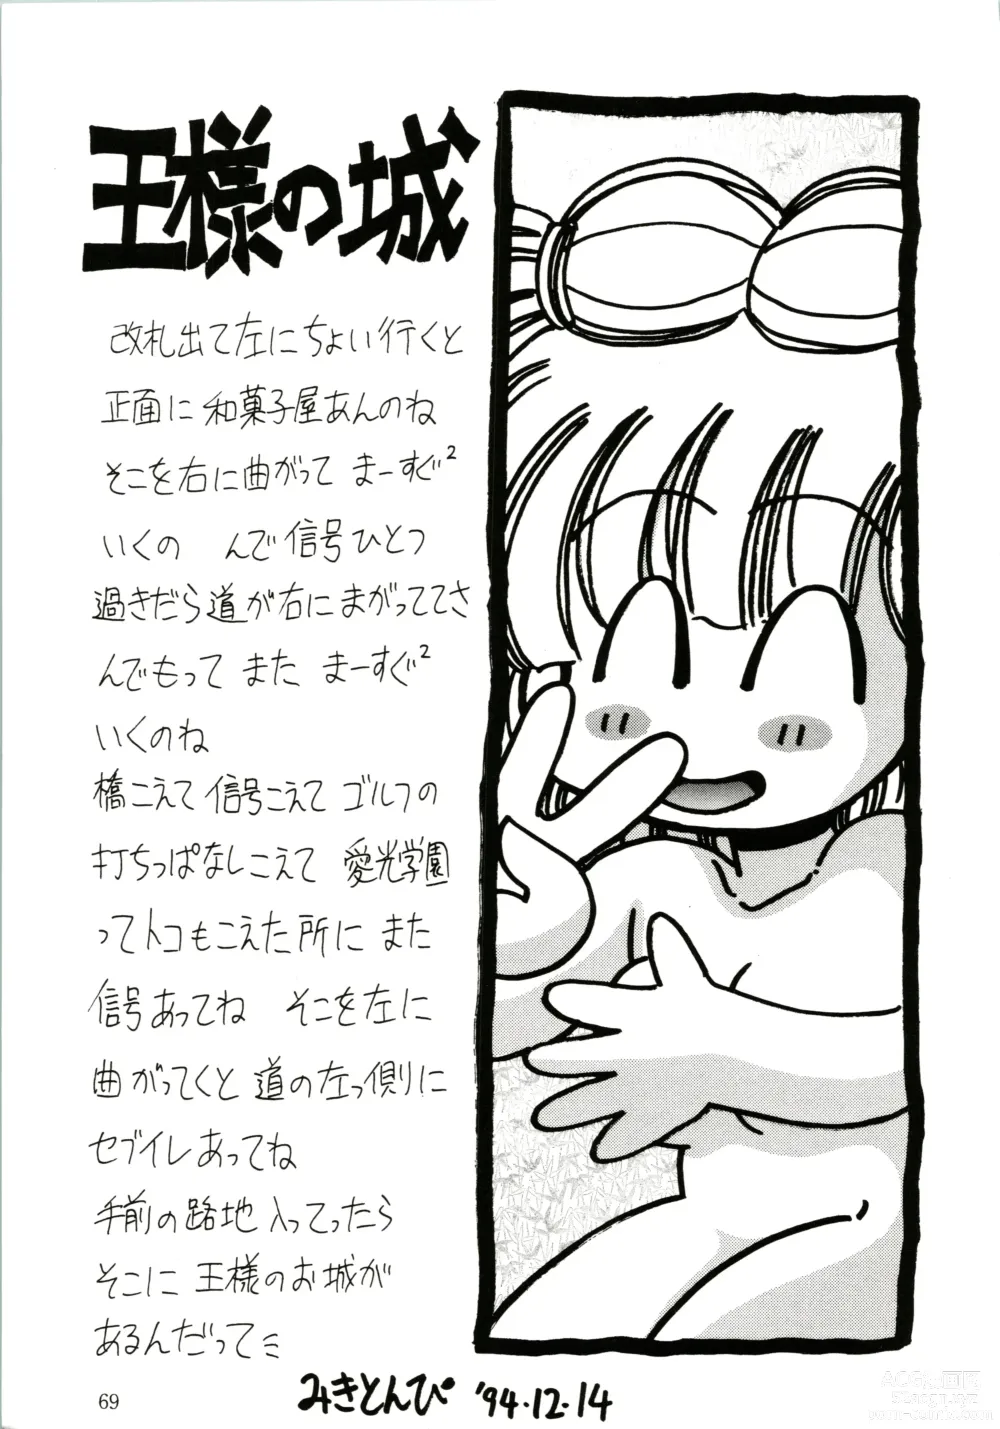 王様の城
改札出て左にちょい行くと
正面に和菓子屋あんのね
そこを右に曲がって まーすぐ²
いくの んで信号ひとつ
過ぎだら道が右にまがっててさ
んでもって また まーすぐ²
いくのね
橋こえて信号こえて ゴルフの
打ちっぱなしこえて 愛光学園
ってトコもこえた所に また
信号あってね そこを左に
曲がってくと 道の左っ側りに
セブイレあってね
手前の路地入ってったら
そこに 王様のお城が
あるんだってミ
みきとんぴ '94.12.14
69